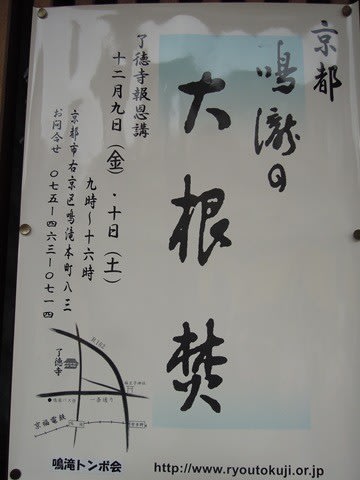 京都
鳴瀧の
大根焚
了徳寺報恩講
十二月九日（金）・十日（土）
九時～十六時
京都市右京区鳴滝本町八三
お問合せ　〇七五―四六三―〇七一四
R162
了徳寺
福王子神社
一条通り
京福電鉄
鳴滝トンボ会
http://www.ryoutokuji.or.jp